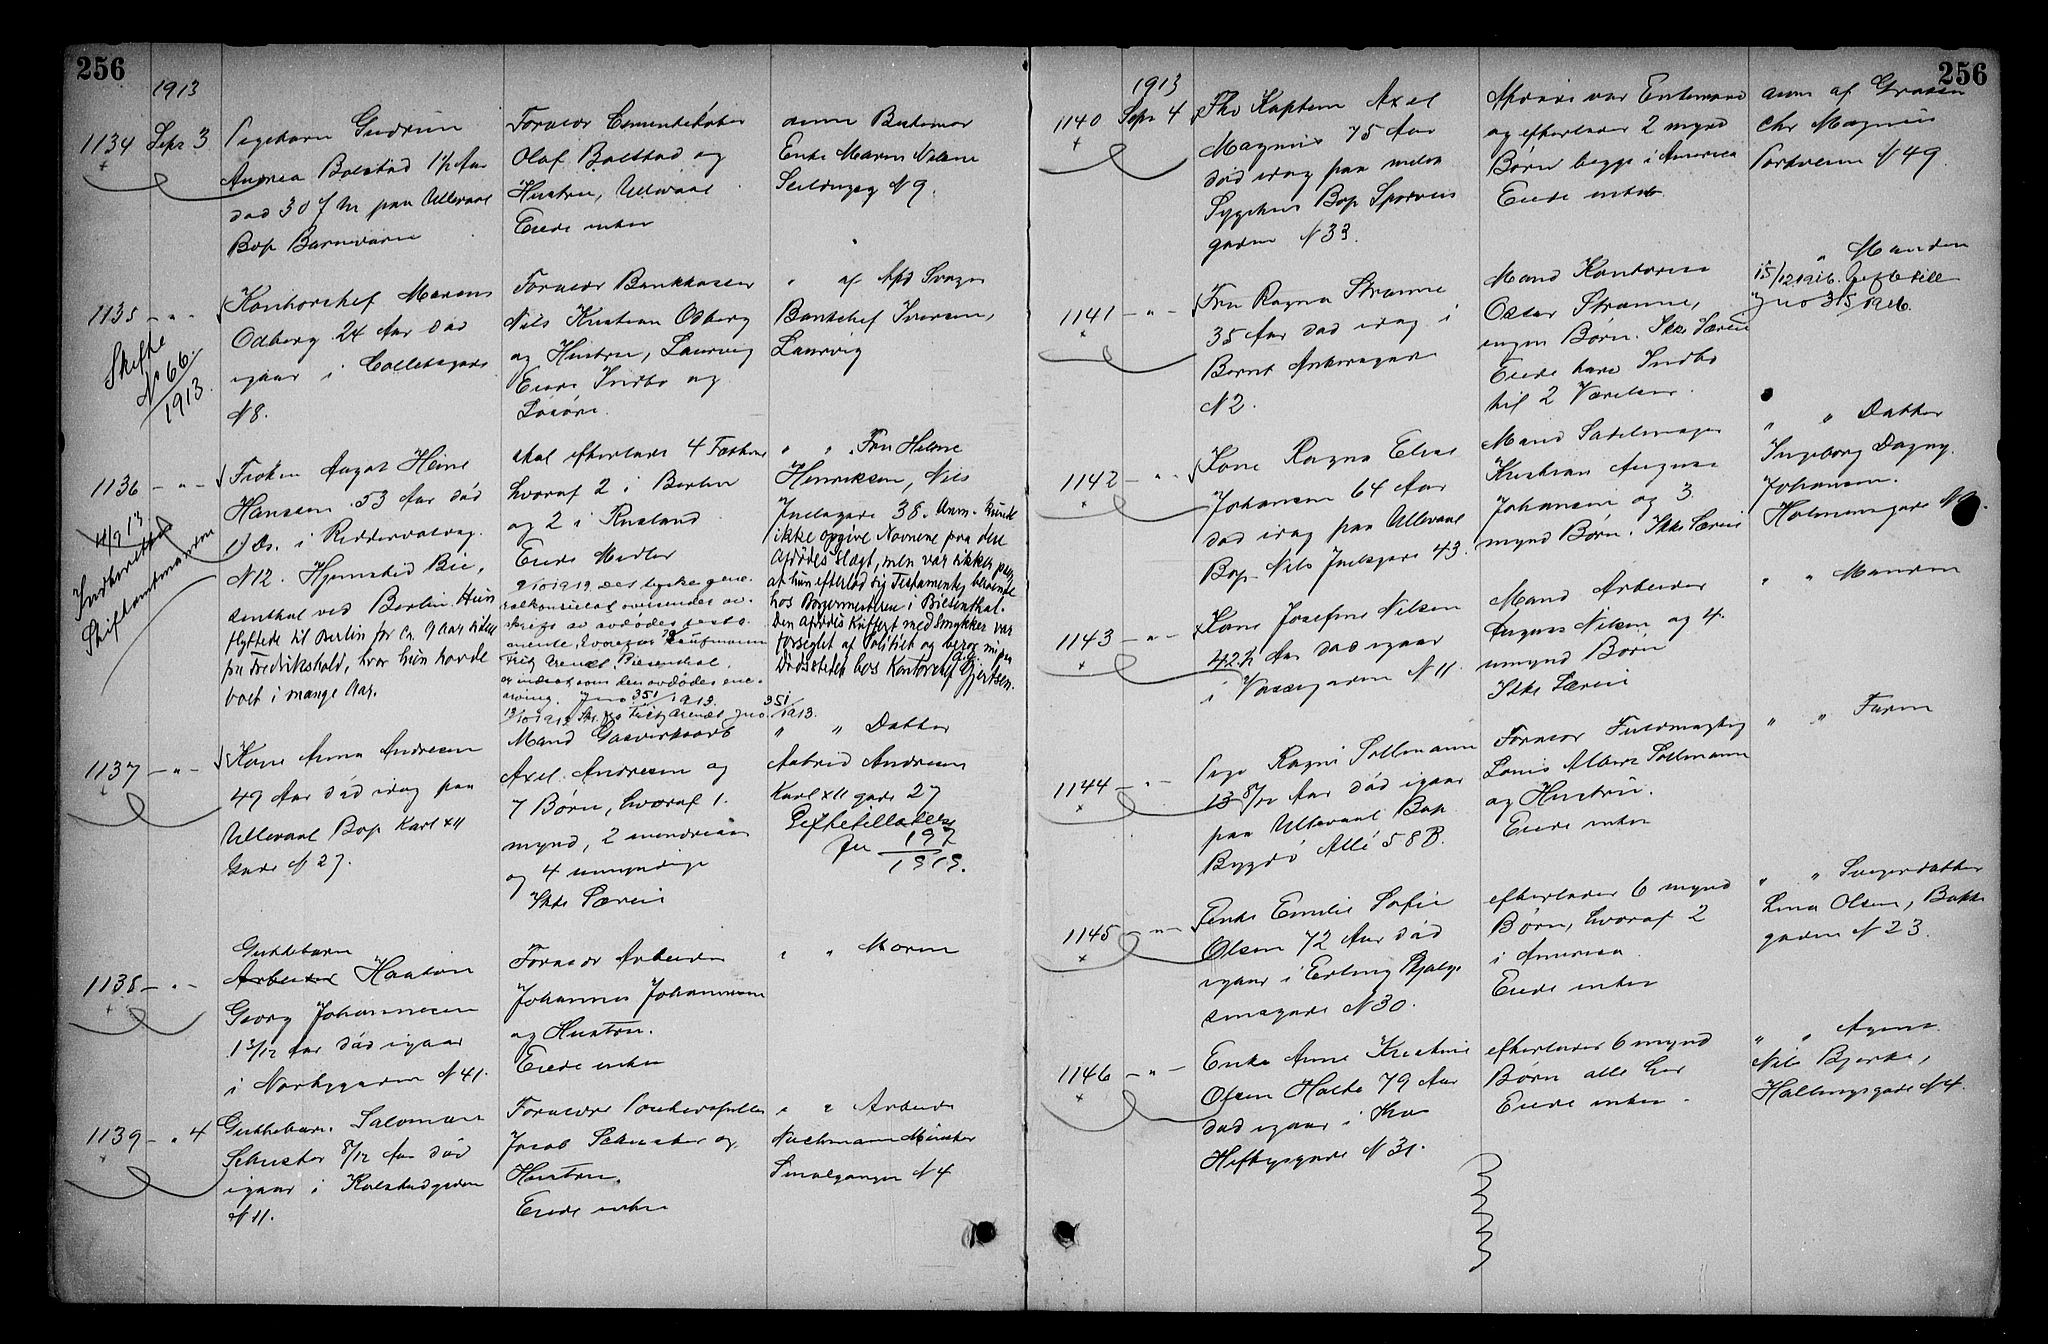 256
1913
1134 Septr 3 Pigebarn Gudrun
Andrea Bolstad 1 1/2 Aar
død 30 f M paa Ullevaal
Bop
Forældr Cementstøber
Olaf Bolstad og
Hustru, Ullevaal
Eiede intet
anm Bestemor
Enke Maren
N 9.
1135 - " - Kontorchef
Odberg 24 Aar død
igaar i Colletsgade
N 8.
Skifte
No 66
1913.
Forældr Bankkasser
Nils Kristian Odberg
og Hustru, Laurvig
Eiede Indbo og
Løsøre.
" af Afd Svoger
Bankchef Iversen,
Laurvig
1136 - " - Frøken August Heine
Hansen 53 Aar død
1 ds. i Riddervoldsg.
N 12. Hjemsted Bie,
senthal ved Berlin. Hun
flyttede til Berlin for ca. 9 Aar siden
fra Fredrikshald, hvor hun havde
boet i mange Aar.
4/9 13
Indberettet
Skiftamtmanden
skal efterlade 4 Søstre
hvoraf 2 i Berlin
og 2 i Rusland
Eiede Midler
9/10 1913 Det tyske gene-
ralkonsulat oversendes av-
skrift av avdødes testa-
mente, hvorefter Kaufmann
Fritz Arendt, Biesenthal,
er indsat som den avdødes ene-
arving. Jno 351/1913.
13/10 1913 Skr. fra Fritz Arendt Jno 351/1913.
" " Fru Helene
Henriksen, Nils
Juelsgade 38. Anm. kunde
ikke opgive Navnene paa den
Afdødes Slægt, men var sikker paa,
at hun efterlod sig Testamente beroende
hos Borgermesteren i Biesenthal.
Den afdødes Kuffert med Smykker var
forseglet af Politiet og beror nu paa
Dødsstedet hos Kontorchef Gjertsen.
1137 - " - Kone Anna Andresen
49 Aar død idag paa
Ullevaal Bop Karl XII
Gade N 27.
Mand Gasverksarb
Axel Andresen og
7 Børn, hvoraf 1
mynd, 2 mindreaar
og 4 umyndige
Ikke Særeie
" " Datter
Astrid Andresen
Karl XII gade 27
Skiftetilladelse
Jno 197
1913.
1138 - " - Guttebarn
Arbeider Haakon
Georg Johannesen
1 3/12 Aar død igaar
i Norbygaden N 41.
Forældr Arbeider
Johannes Johannesen
og Hustru.
Eiede intet
" " Moren
1139 - " 4 Guttebarn Salomon
Schuster 8/12 Aar død
igaar i Kolstadgaden
N 11.
Forældre
Jacob Schuster og
Hustru.
Eiede intet
" " Arbeider
Nachmann
Smalgangen N 4
256
1913
1140 Septr 4 Fhv Kaptein Axel
Magnus 75 Aar
død idag paa
Sygehus Bop Sporveis
gaden N 33.
Afdøde var Enkemand
og efterlader 2 mynd
Børn begge i America
Eiede intet
anm af
Chr Magnus
Parkveien N 49
1141 - " - Fru Ragna Strømme
35 Aar død idag i
Bernt Ankersgade
N 2.
Mand Kontorist
Oscar Strømme,
ingen Børn. Ikke Særeie
Eiede bare Indbo
til 2 Værelser.
" Manden
15/12 1916.
Jno 315 1916.
1142 - " - Kone Ragna Elise
Johansen 64 Aar
død idag paa Ullevaal
Bop Nils Juelsgade 43.
Mand Sadelmager
Kristian August
Johansen og 3
mynd Børn. Ikke Særeie
" " Datter
Ingeborg Dagny
Johansen.
Holmensgade N
1143 - " - Kone Josefine Nilsen
42 1/2 Aar død igaar
i Vossegaden N 11.
Mand Arbeider
August Nilsen og 4
umynd Børn
Ikke Særeie
" " Manden
1144 - " - Pige Ragni Sollmann
13 8/12 Aar død igaar
paa Ullevaal Bop
Bygdø Allé 58 B.
Forældr Fuldmægtig
Louis Albert Sollmann
og Hustru.
Eiede intet
" " Faren
1145 - " - Enke Emilie Sofie
Olsen 72 Aar død
igaar i Erling Skjalgs
sønsgade N 30.
efterlader 6 mynd
Børn, hvoraf 2
i America
Eiede intet
" " Svigerdatter
Lina Olsen, Bakke
gaden N 23.
1146 - " - Enke Anne Kristine
Olsen Holte 79 Aar
død igaar i Thv
Heftysgade N 31.
efterlader 6 mynd
Børn alle her
Eiede intet
" " Agent
Nils Bjerke,
Hallingsgade N 4.